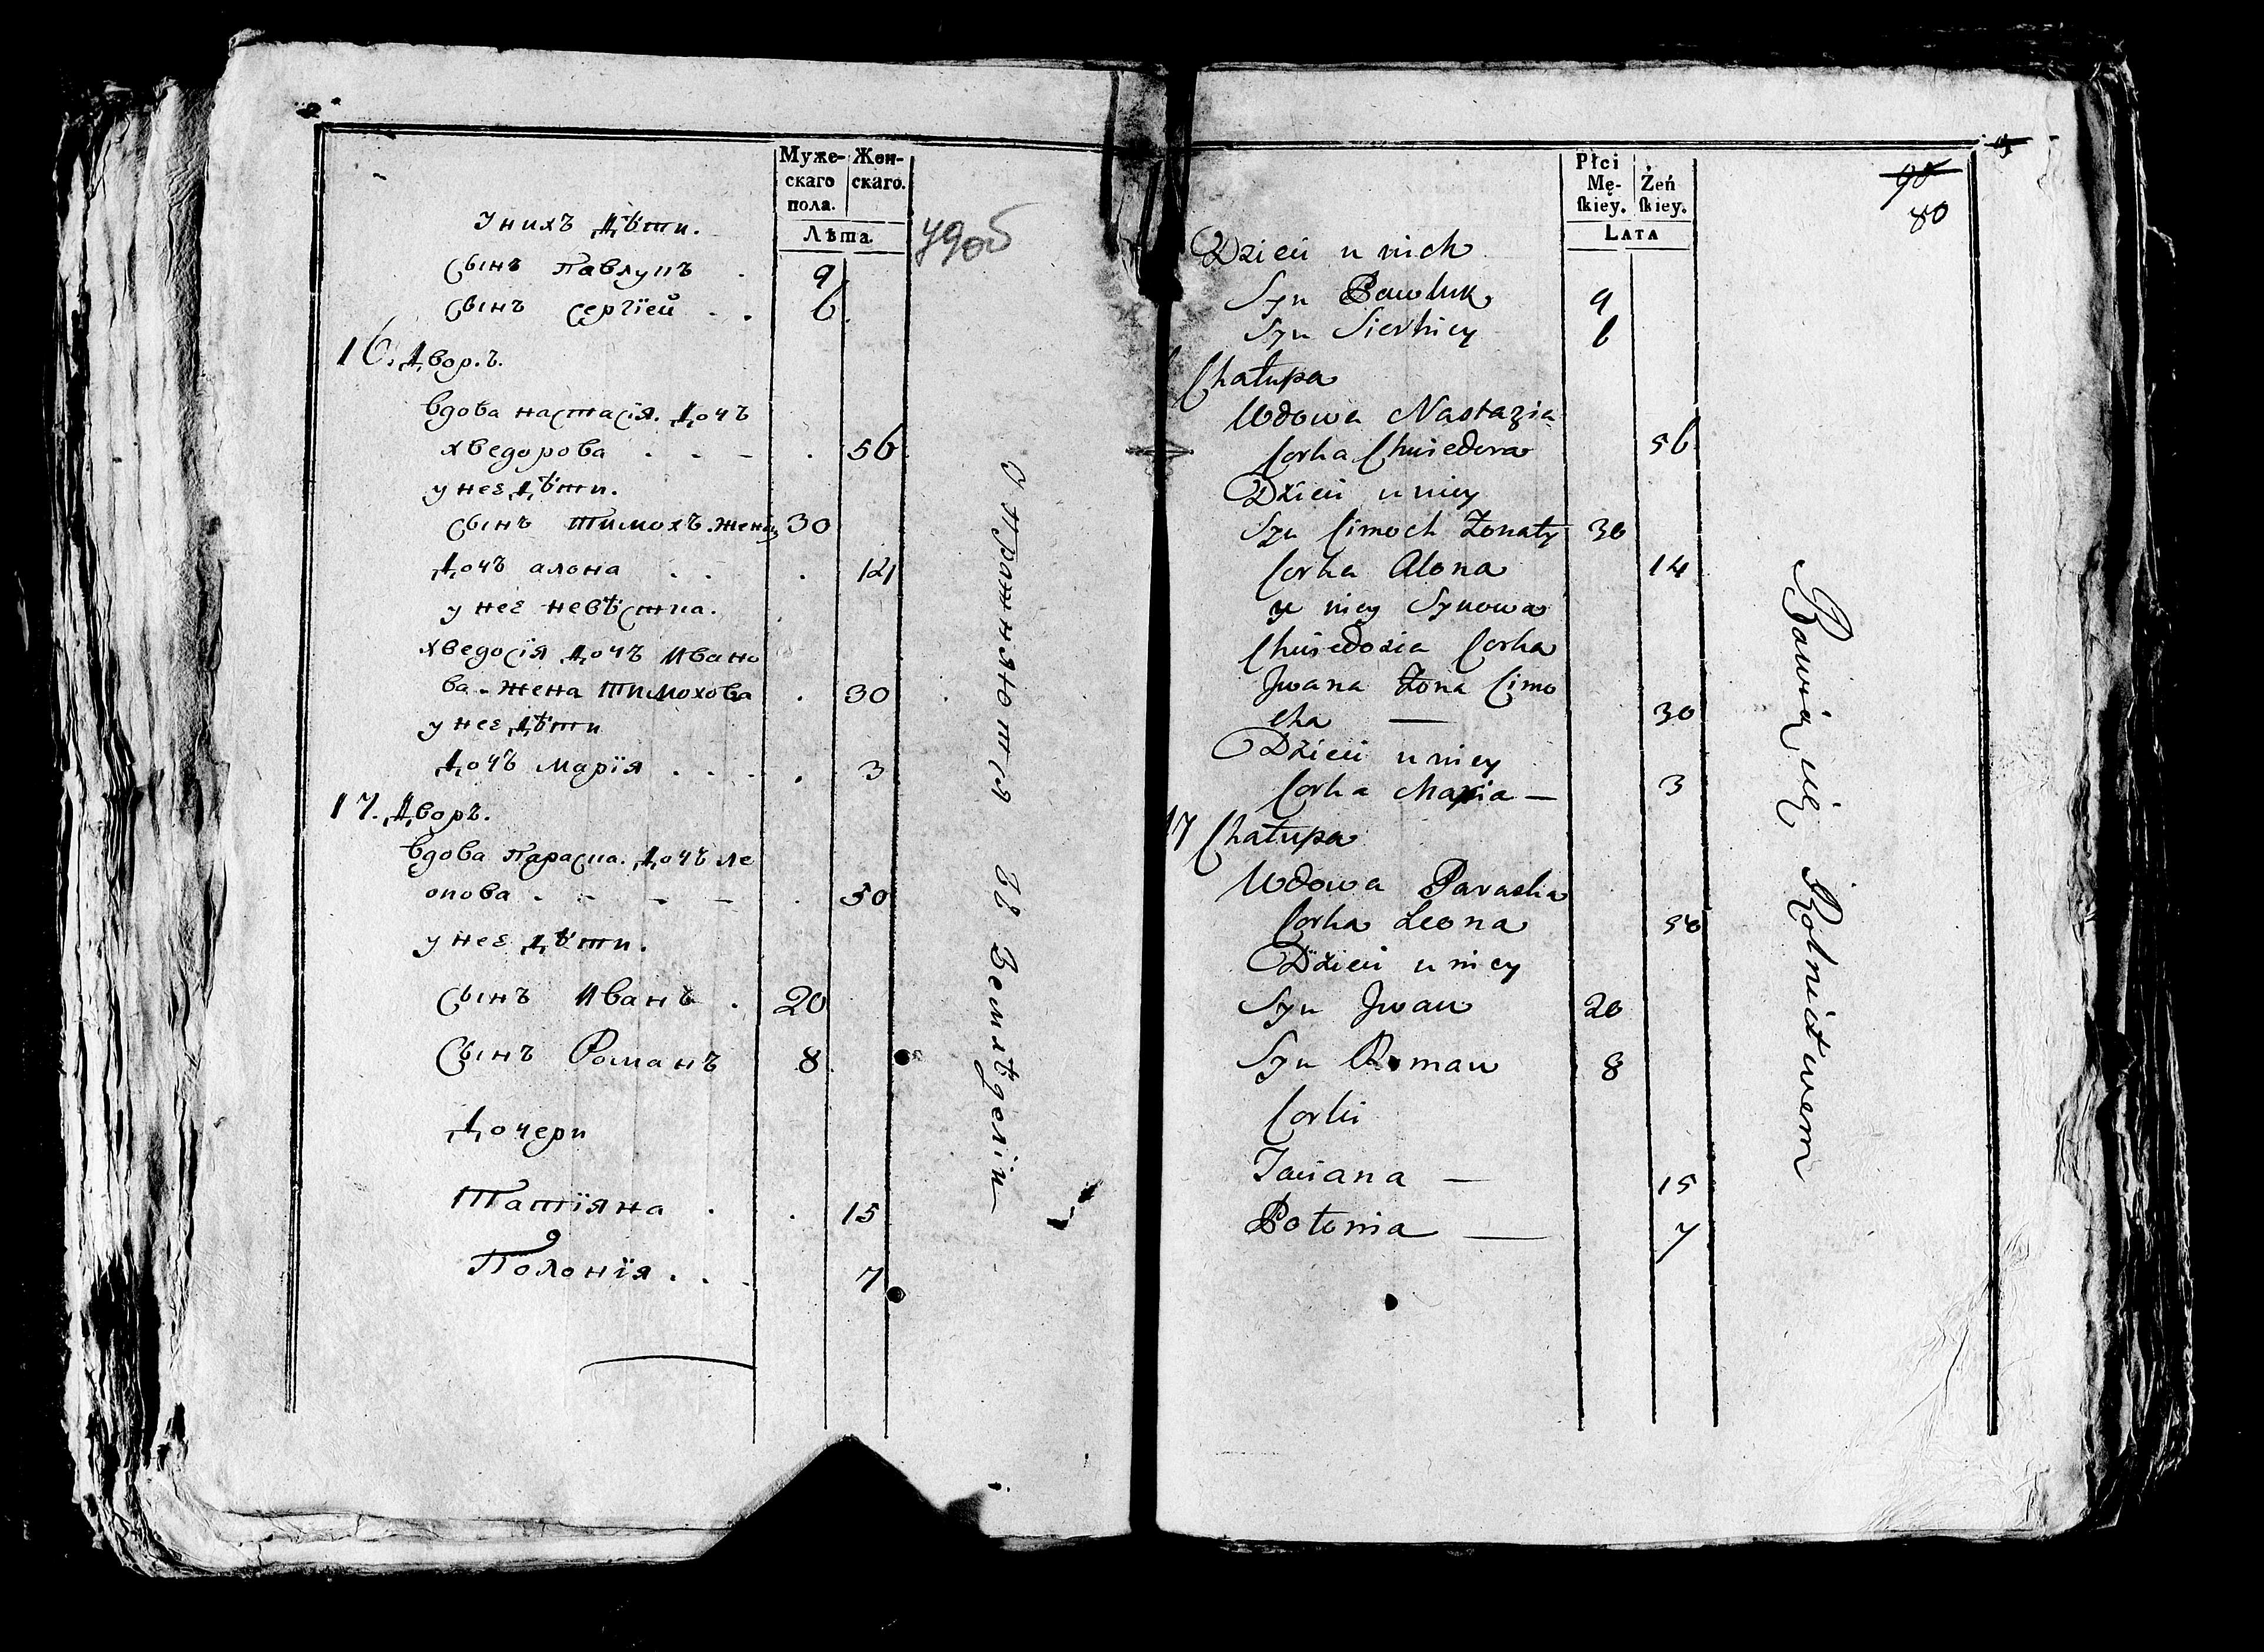 Муже-
скаго
пола.
Жен-
скаго.
Лѣта
У нихъ Дѣти.
Сынъ Павлукъ . 9
Сынъ Сергїей . . 6.
16. Дворъ.
Вдова Настасїя. Дочъ
Хведорова . . - . 56
у неε Дѣти.
Сынъ Тимохъ. жени 30
Дочъ Алона . . . 14
у неε невѣстка.
Хведосїя Дочъ Ивано
ва. жена Тимохова . 30
у неε Дѣти
Дочъ Марїя . . . . 3
17. Дворъ.
Вдова Параска. Дочъ Ле
онова . - - - . 50
у неε Дѣти.
Сынъ Иванъ . 20
Сынъ Романъ 8
Дочери
Татїяна . . 15
Полонїя . . . 7
Упражняются въ Земледелїи
Płci
Mę-
skiey.
Żeń
skiey.
LATA
80
Dzieci u nich
Syn Pawluk 9
Syn Sierhiey 6
Chałupa
Wdowa Nastazia
Corka Chwiedora 56
Dzieci u niey
Syn Cimoch Żonaty 30
Corka Alona 14
u niey Synowa
Chwiedozia Corka
Jwana Żona Cimo
cha — 30
Dzieci u niey
Corka Maria — 3
17 Chałupa
Wdowa Paraska
Corka Leona 50
Dzieci u niey
Syn Jwan 20
Syn Roman 8
Corki
Taciana — 15
Połonia — 7
Bawią się Rolnictwem